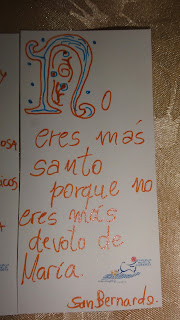 No
eres más
santo
porque no
eres más
devoto de
María.
San Bernardo.